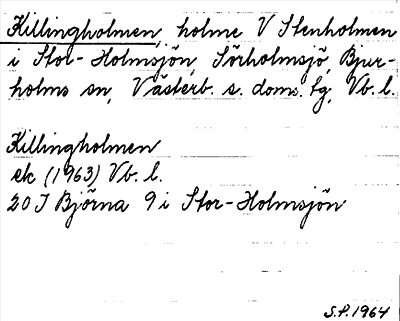 Killingholmen, holme V Stenholmen
i Stor-Holmsjön, Sörholmsjö, Bjur-
holms sn, Västerb. s. doms. tg, Vb. l.
Killingholmen
ek (1963) Vb. l.
20 J Björna 9 i Stor-Holmsjön
S.P. 1964